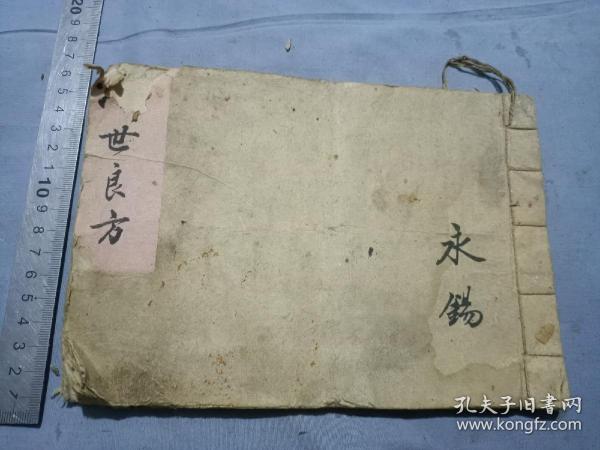 世良方
永锡
孔夫子旧书网
www.kongfz.com
20
9 8 7 6 5 4 3 2 1
10
9 8 7 6 5 4 3 2